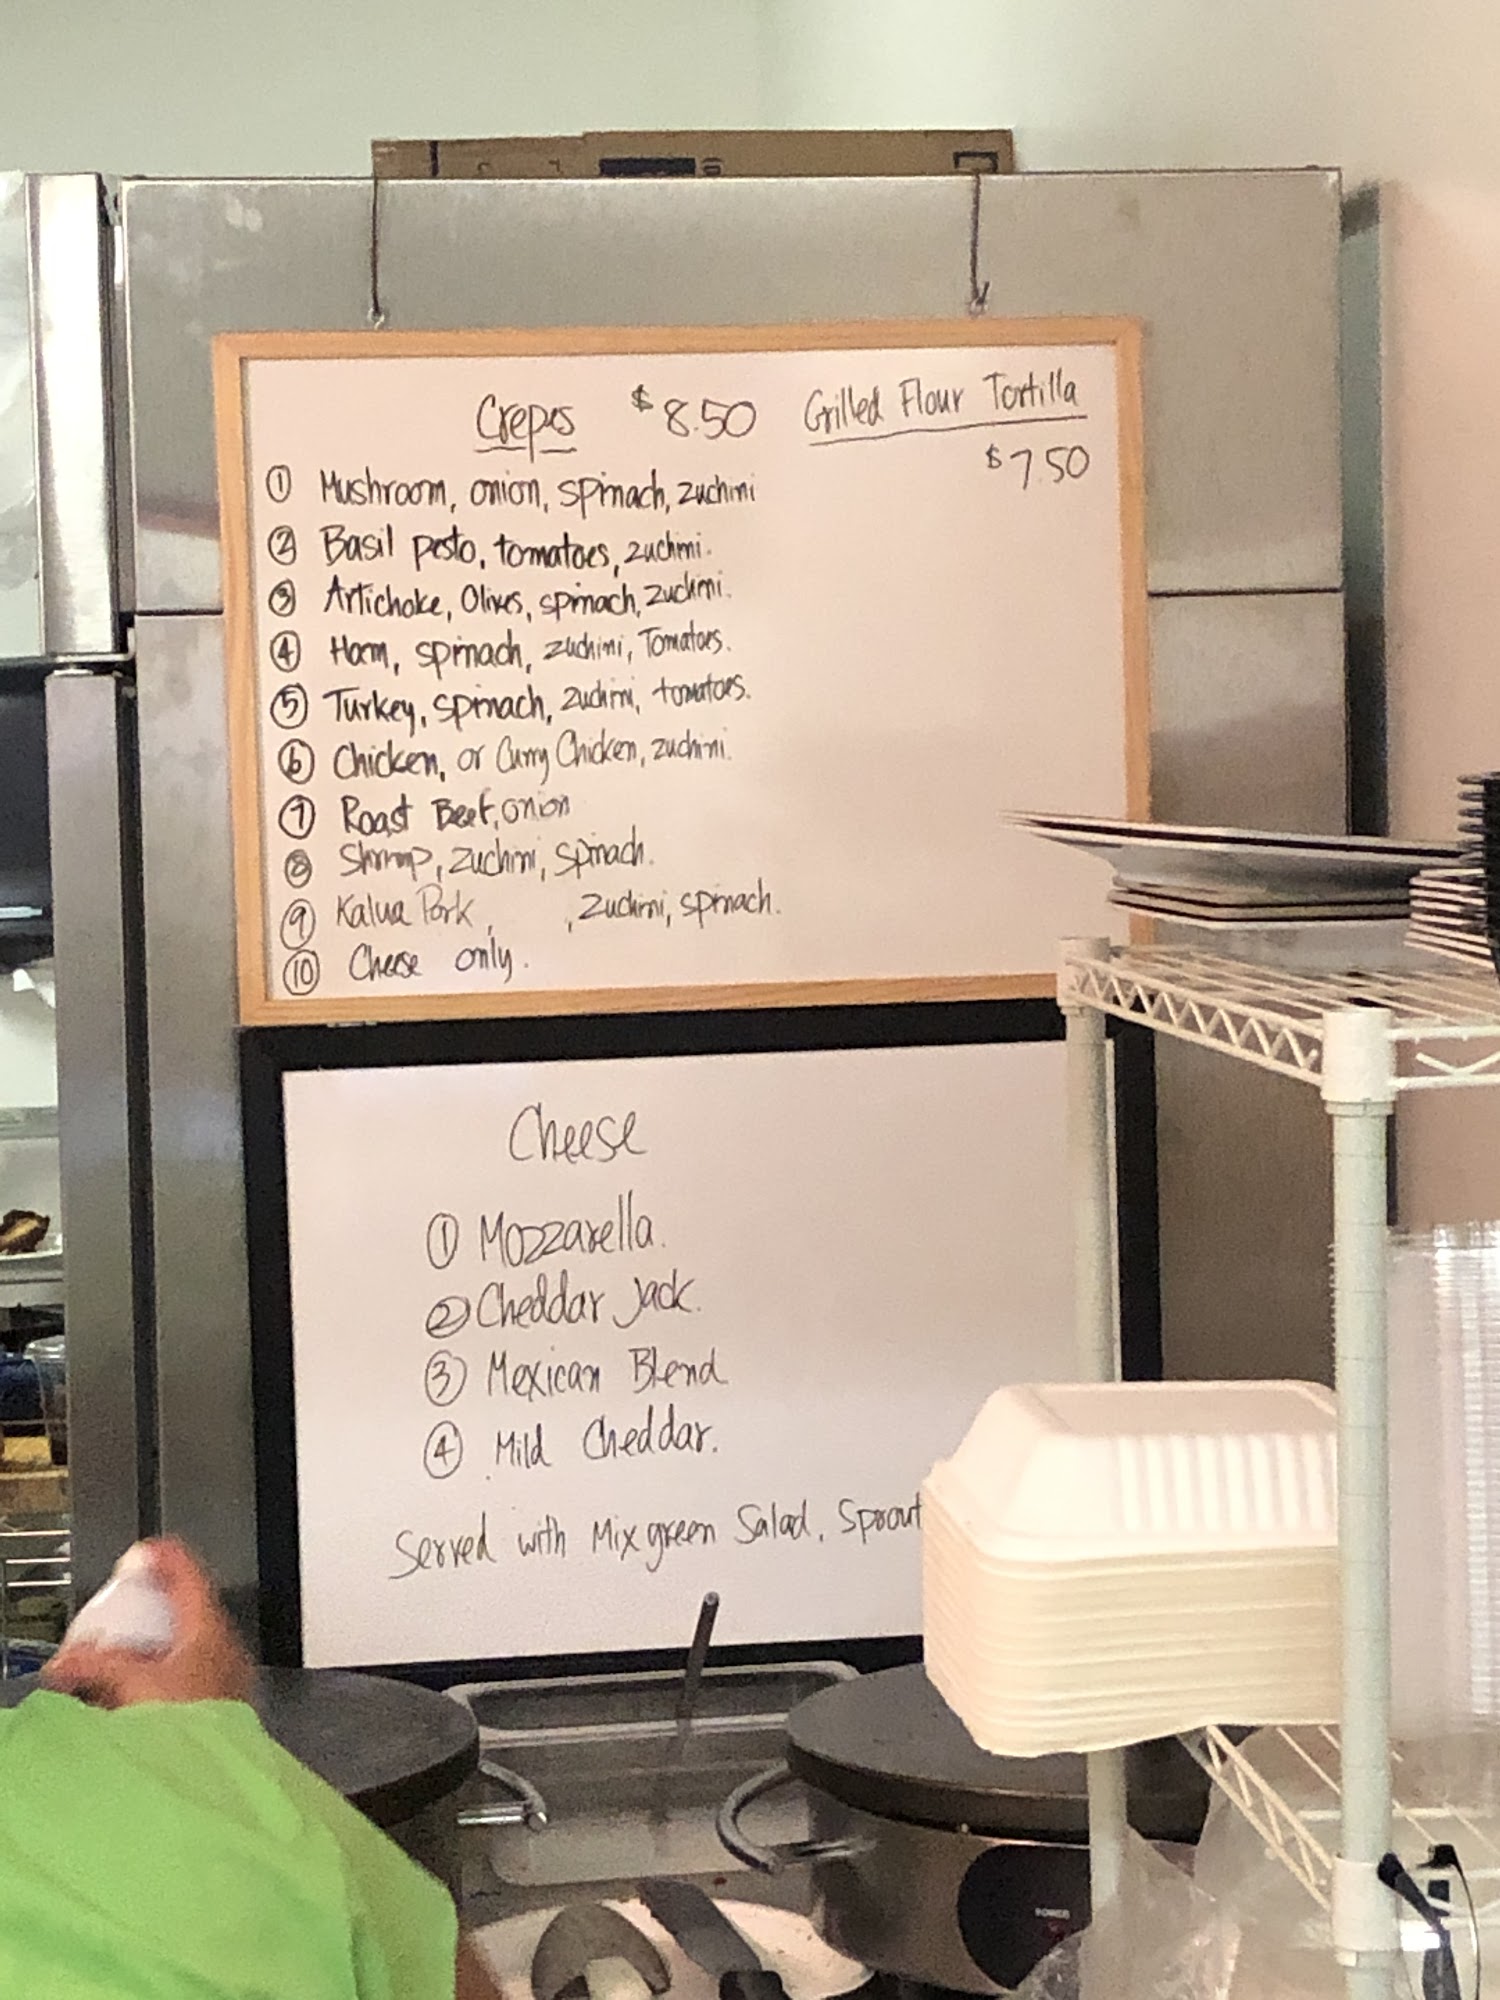 Crepes $8.50 Grilled Flour Tortilla
$7.50
① Mushroom, onion, spinach, zuchini
② Basil pesto, tomatoes, zuchini.
③ Artichoke, Olives, spinach, zuchini.
④ Ham, spinach, zuchini, Tomatoes.
⑤ Turkey, spinach, zuchini, tomatoes.
⑥ Chicken, or Curry Chicken, zuchini.
⑦ Roast Beef, onion
⑧ Shrimp, zuchini, spinach.
⑨ Kalua Pork, , zuchini, spinach.
⑩ Cheese only.
Cheese
① Mozzarella.
② Cheddar Jack.
③ Mexican Blend
④ Mild Cheddar.
Served with Mix green Salad, Sprout
POWER